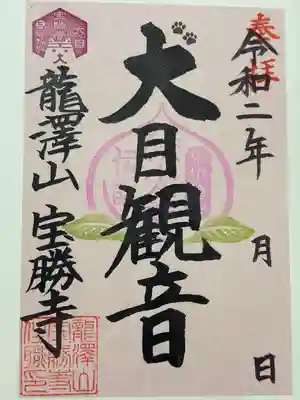 奉拝
令和二年　月　日
犬目観音
龍澤山 宝勝寺
龍澤山